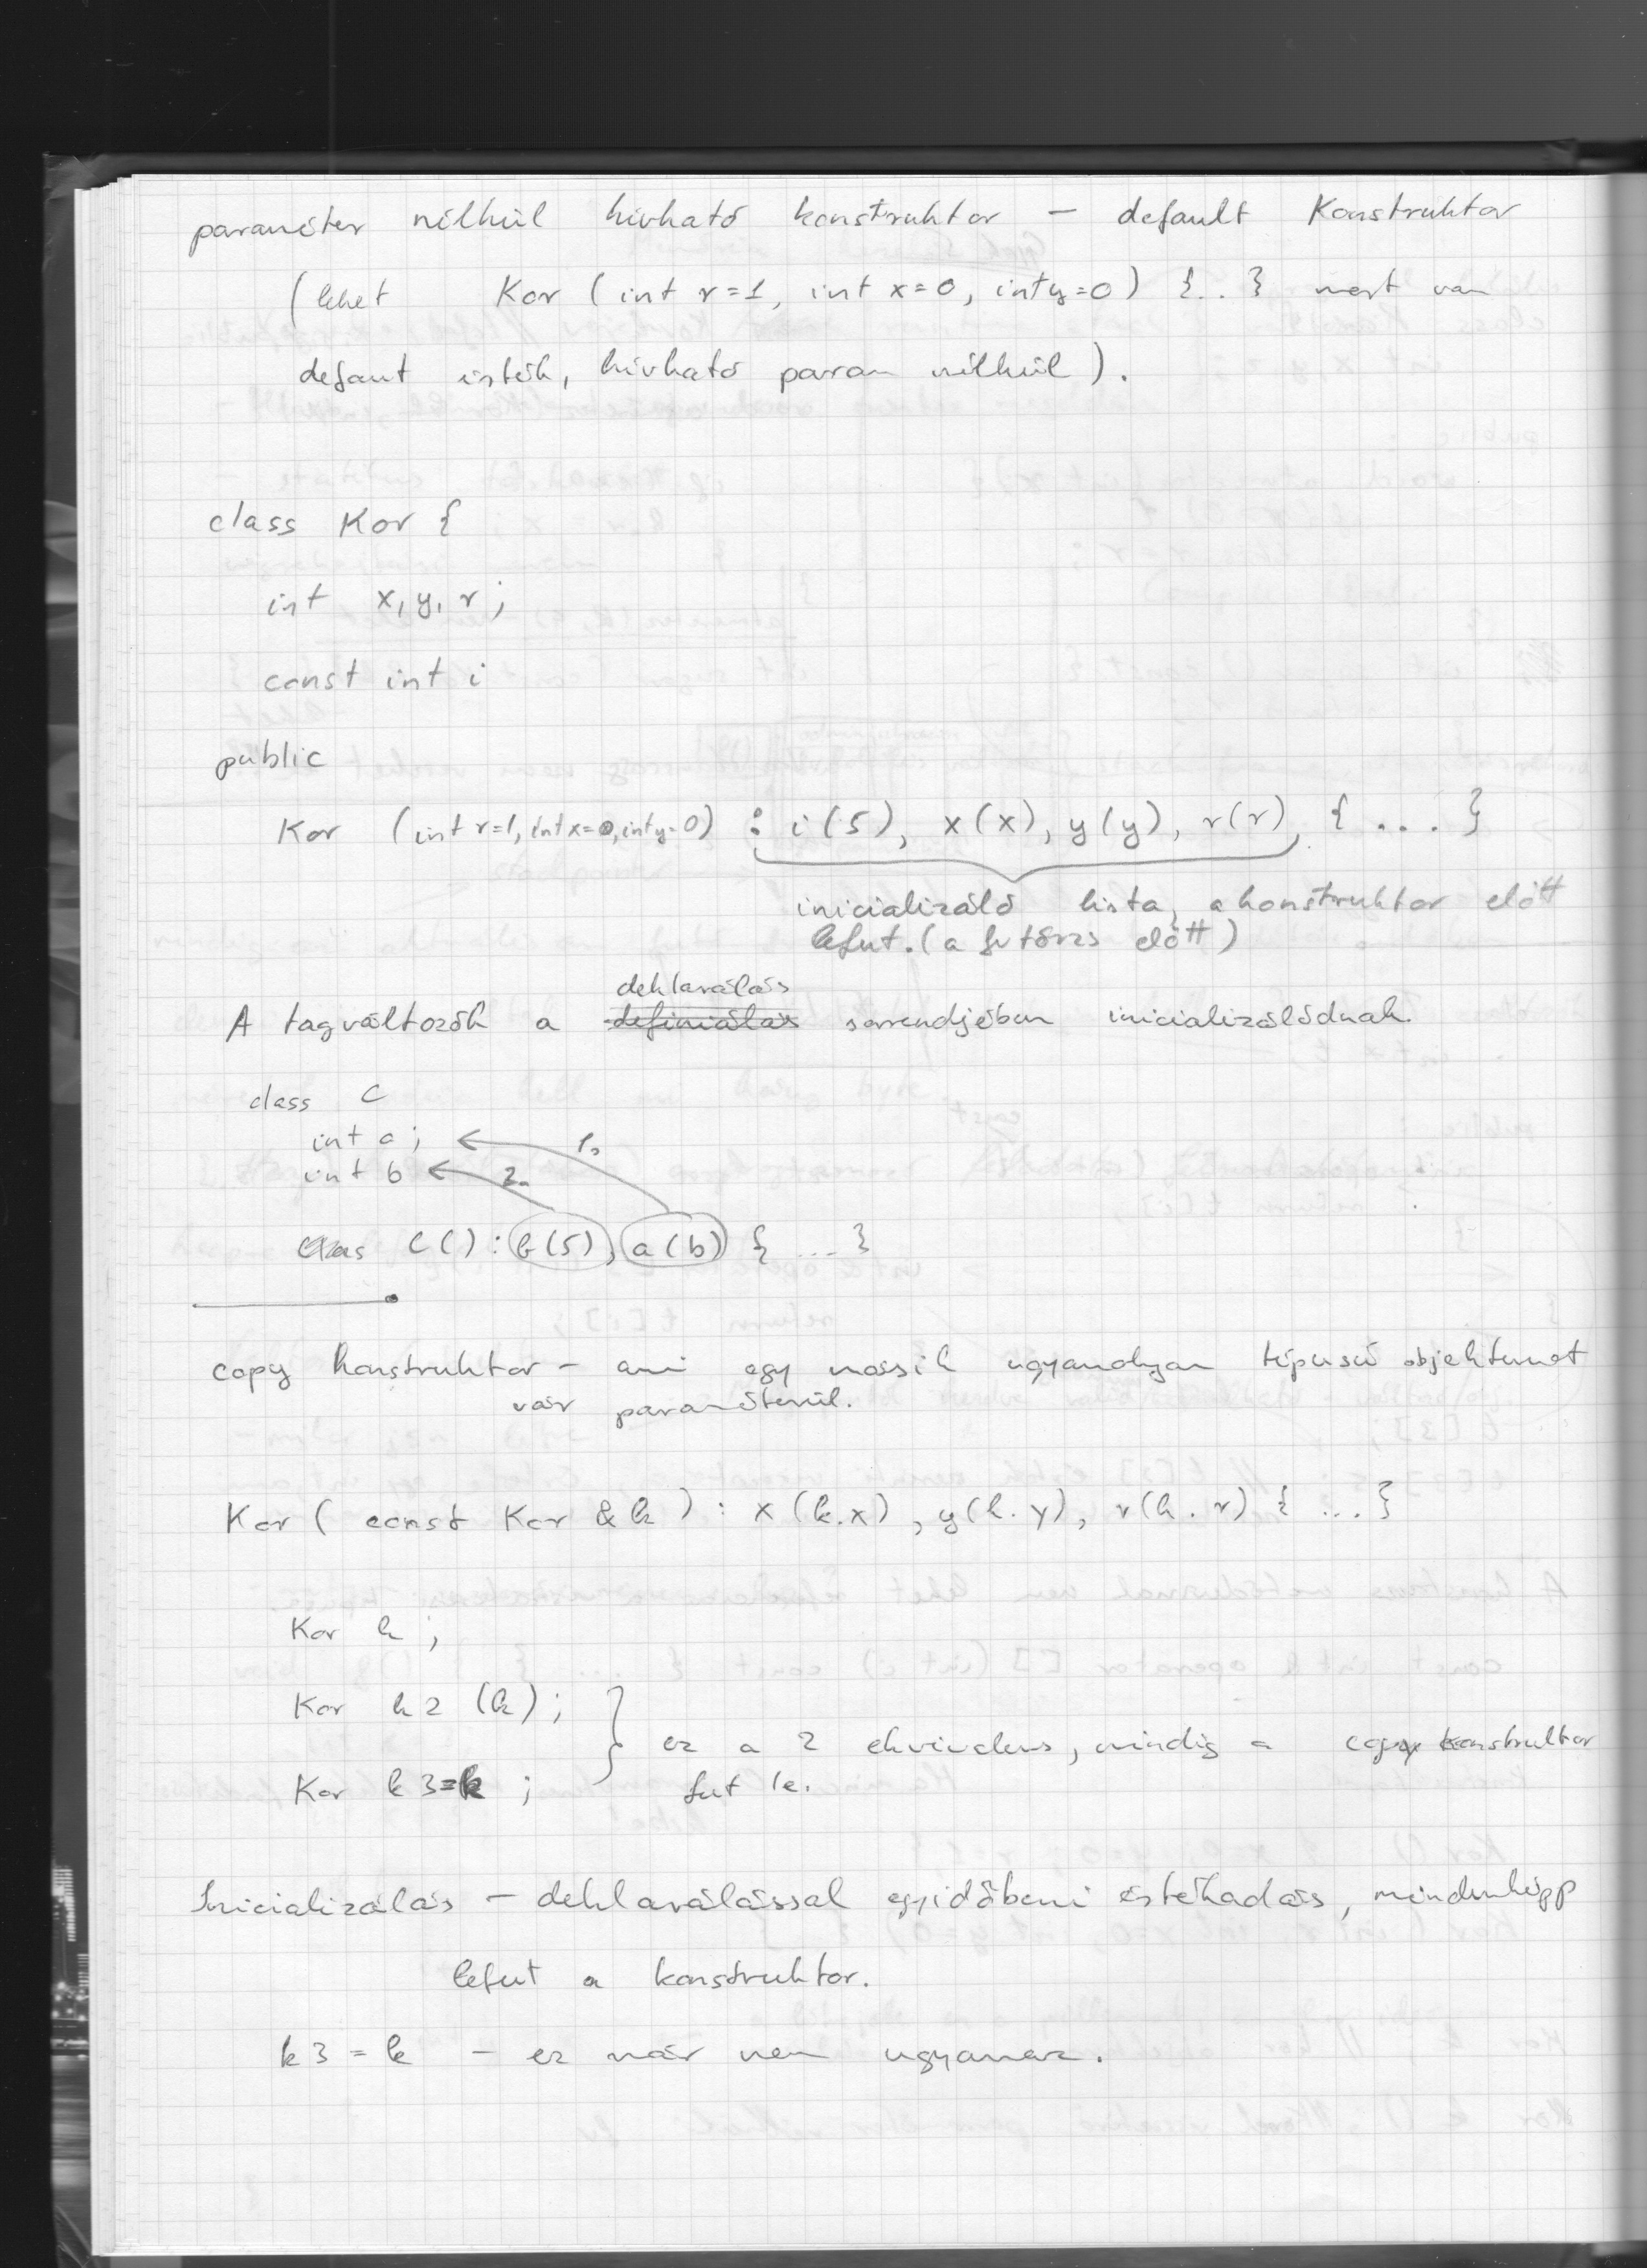 paraméter nélkül hívható konstruktor – default Konstruktor
(lehet Kor (int r=1, int x=0, int y=0) {..} mert van
defaut érték, hívható param nélkül).
class Kor {
int x, y, r;
const int i
public
Kor (int r=1, int x=0, int y=0) : i(5), x(x), y(y), r(r), {...}
inicializáló lista, a konstruktor előtt
lefut. (a fv törzs előtt)
deklarálás
A tagváltozók a definiálás sorrendjében inicializálódnak.
class C
int a; 1.
int b 2.
C() : b(5), a(b) {...}
copy konstruktor – ami egy másik ugyanolyan típusú objektumot
vár paraméterül.
Kor ( const Kor &k ) : x(k.x), y(k.y), r(k.r) {...}
Kor k;
Kor k2 (k);
ez a 2 ekvivalens, mindig a copy konstruktor
Kor k3=k;
fut le.
Inicializálás – deklarálással egyidőbeni értékadás, mindenképp
lefut a konstruktor.
k3 = k – ez már nem ugyanaz.